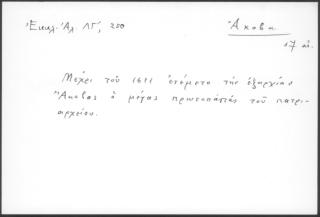 Ἐκκλ. Ἀλ. ΛΓ', 250
Ἄκοβα.
17 αἰ.
Μέχρι τοῦ 1611 ἐτόμετο τῆς ἐξαρχίας
Ἄκοβας ὁ μέγας πρωτοπαπᾶς τοῦ πατρι-
αρχείου.